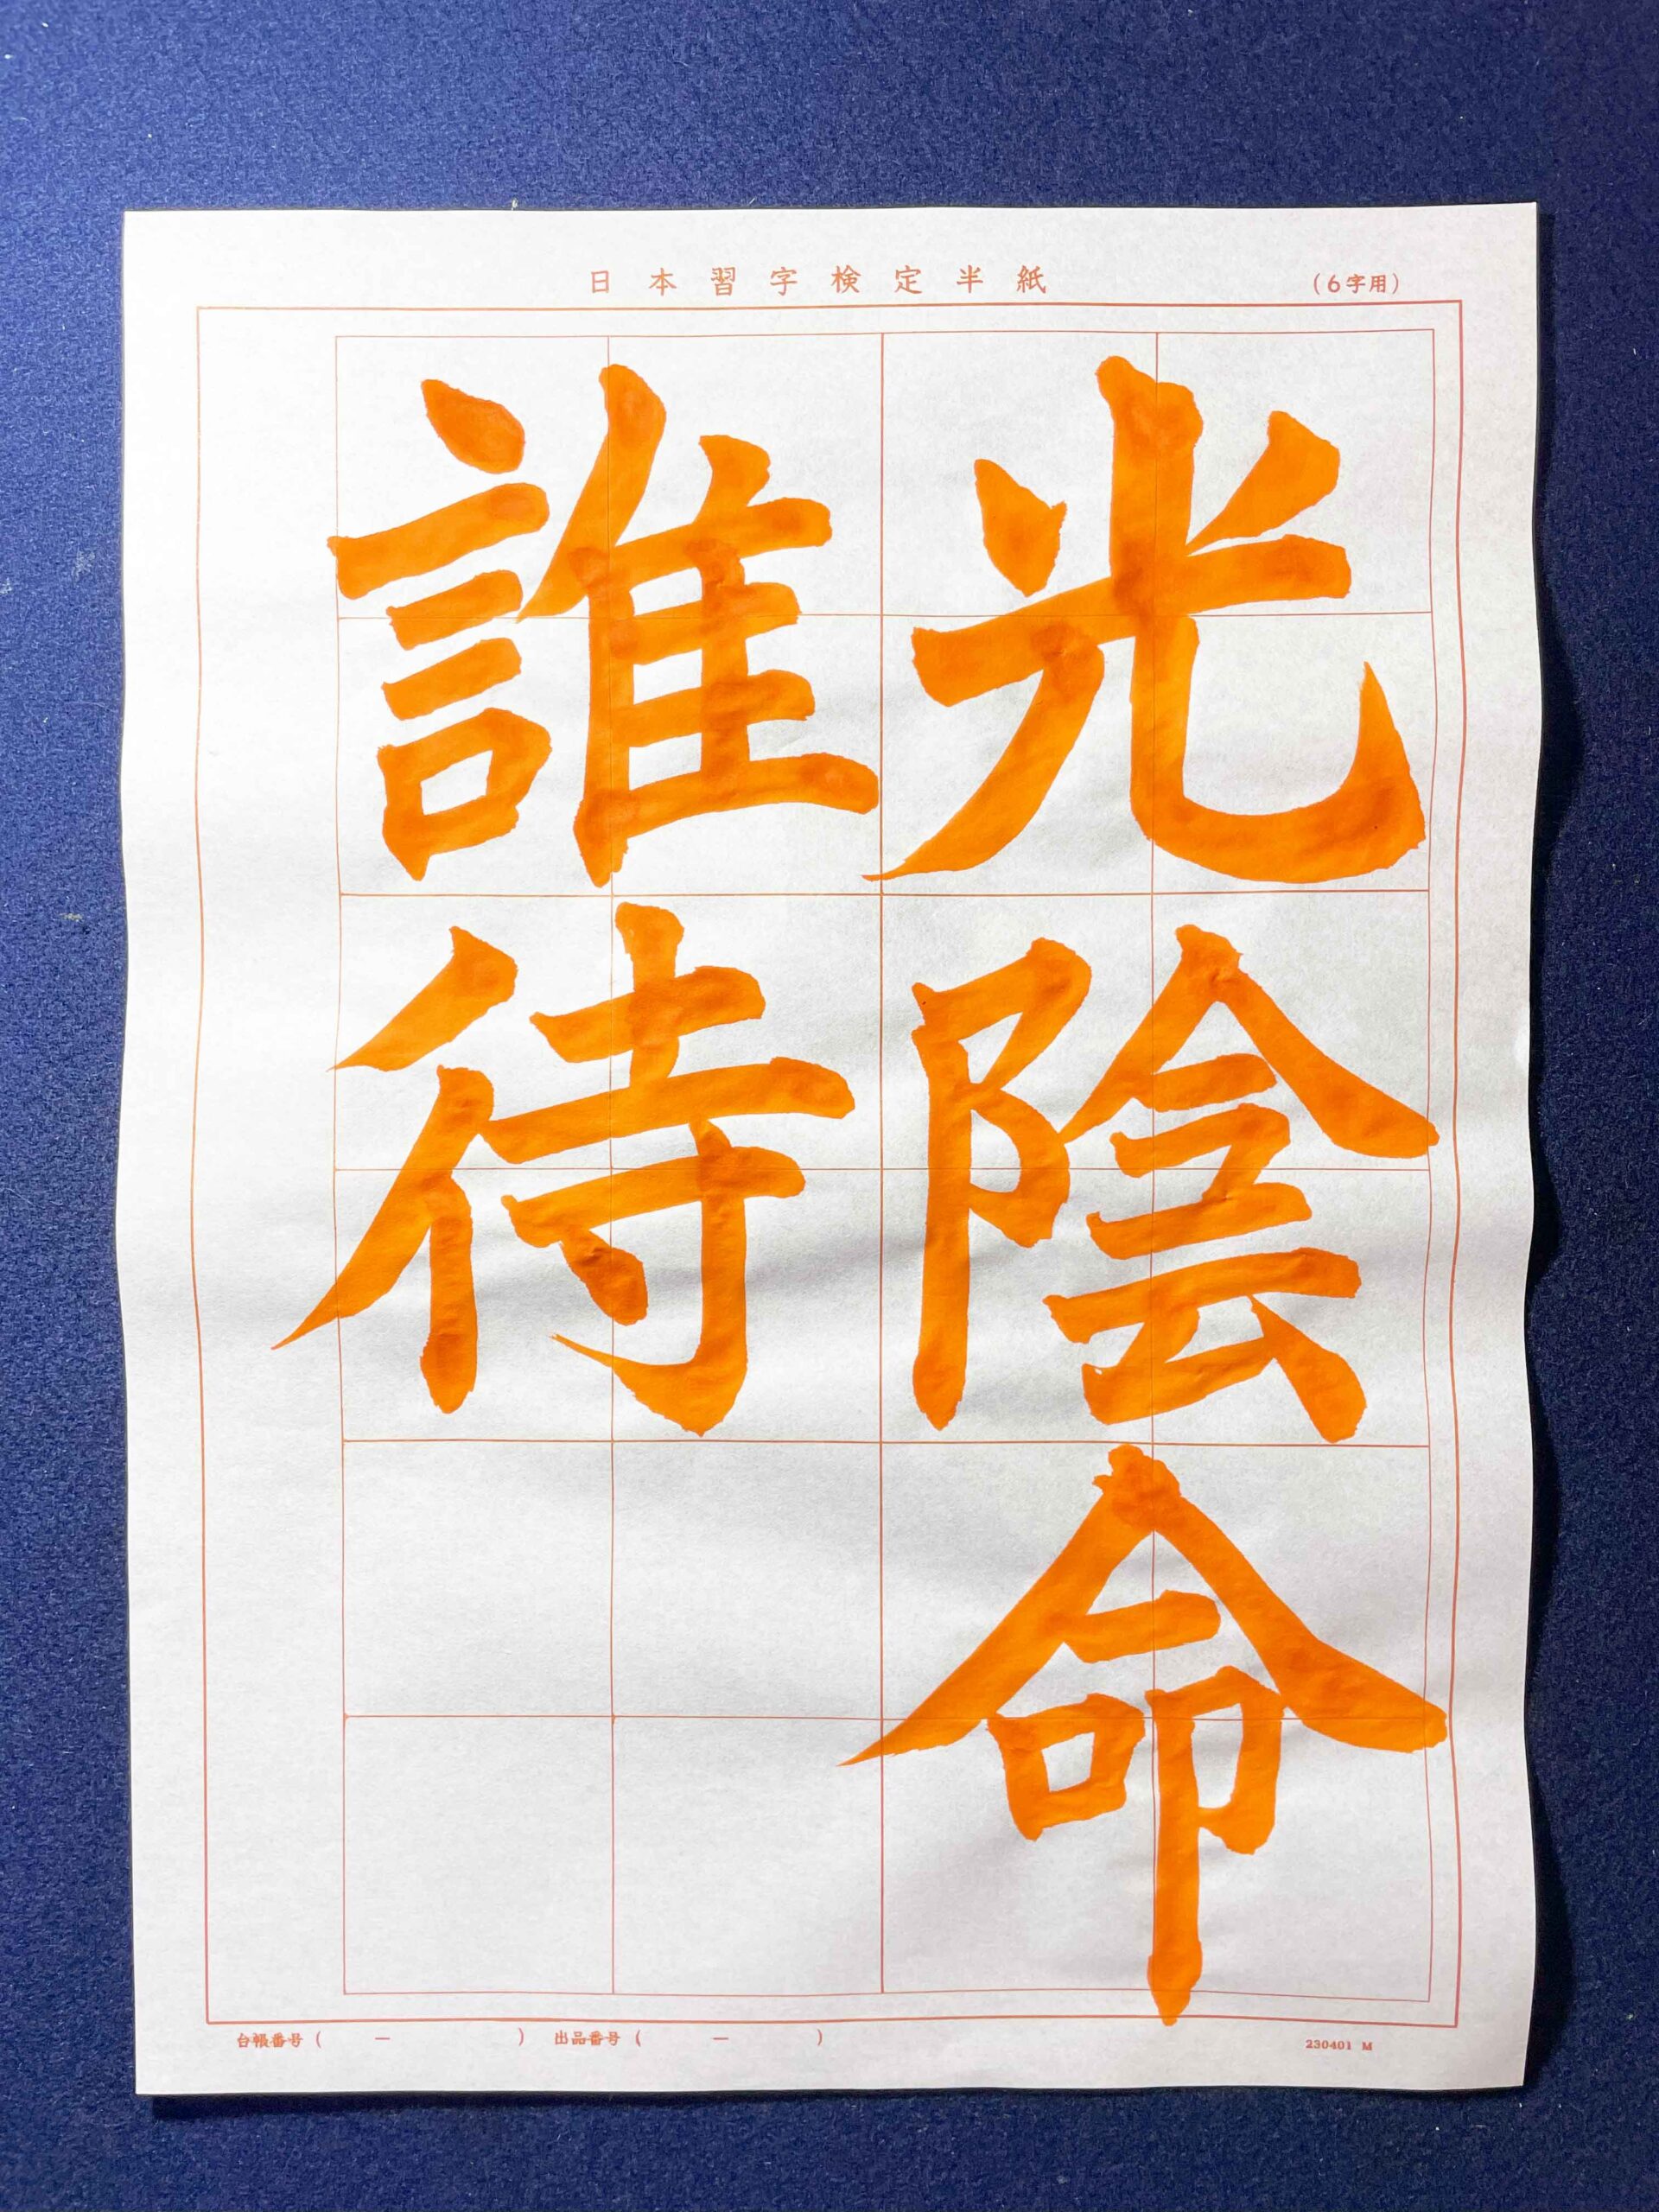 日本習字検定半紙
(6字用)
光陰命
誰待
台帳番号 ( ー ) 出品番号 ( ー )
230401 M